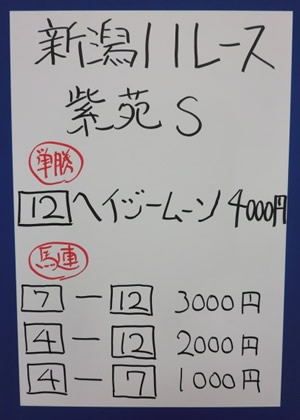 新潟11レース
紫苑S
単勝
12 ヘイジームーン 4000円
馬連
7 — 12 3000円
4 — 12 2000円
4 — 7 1000円